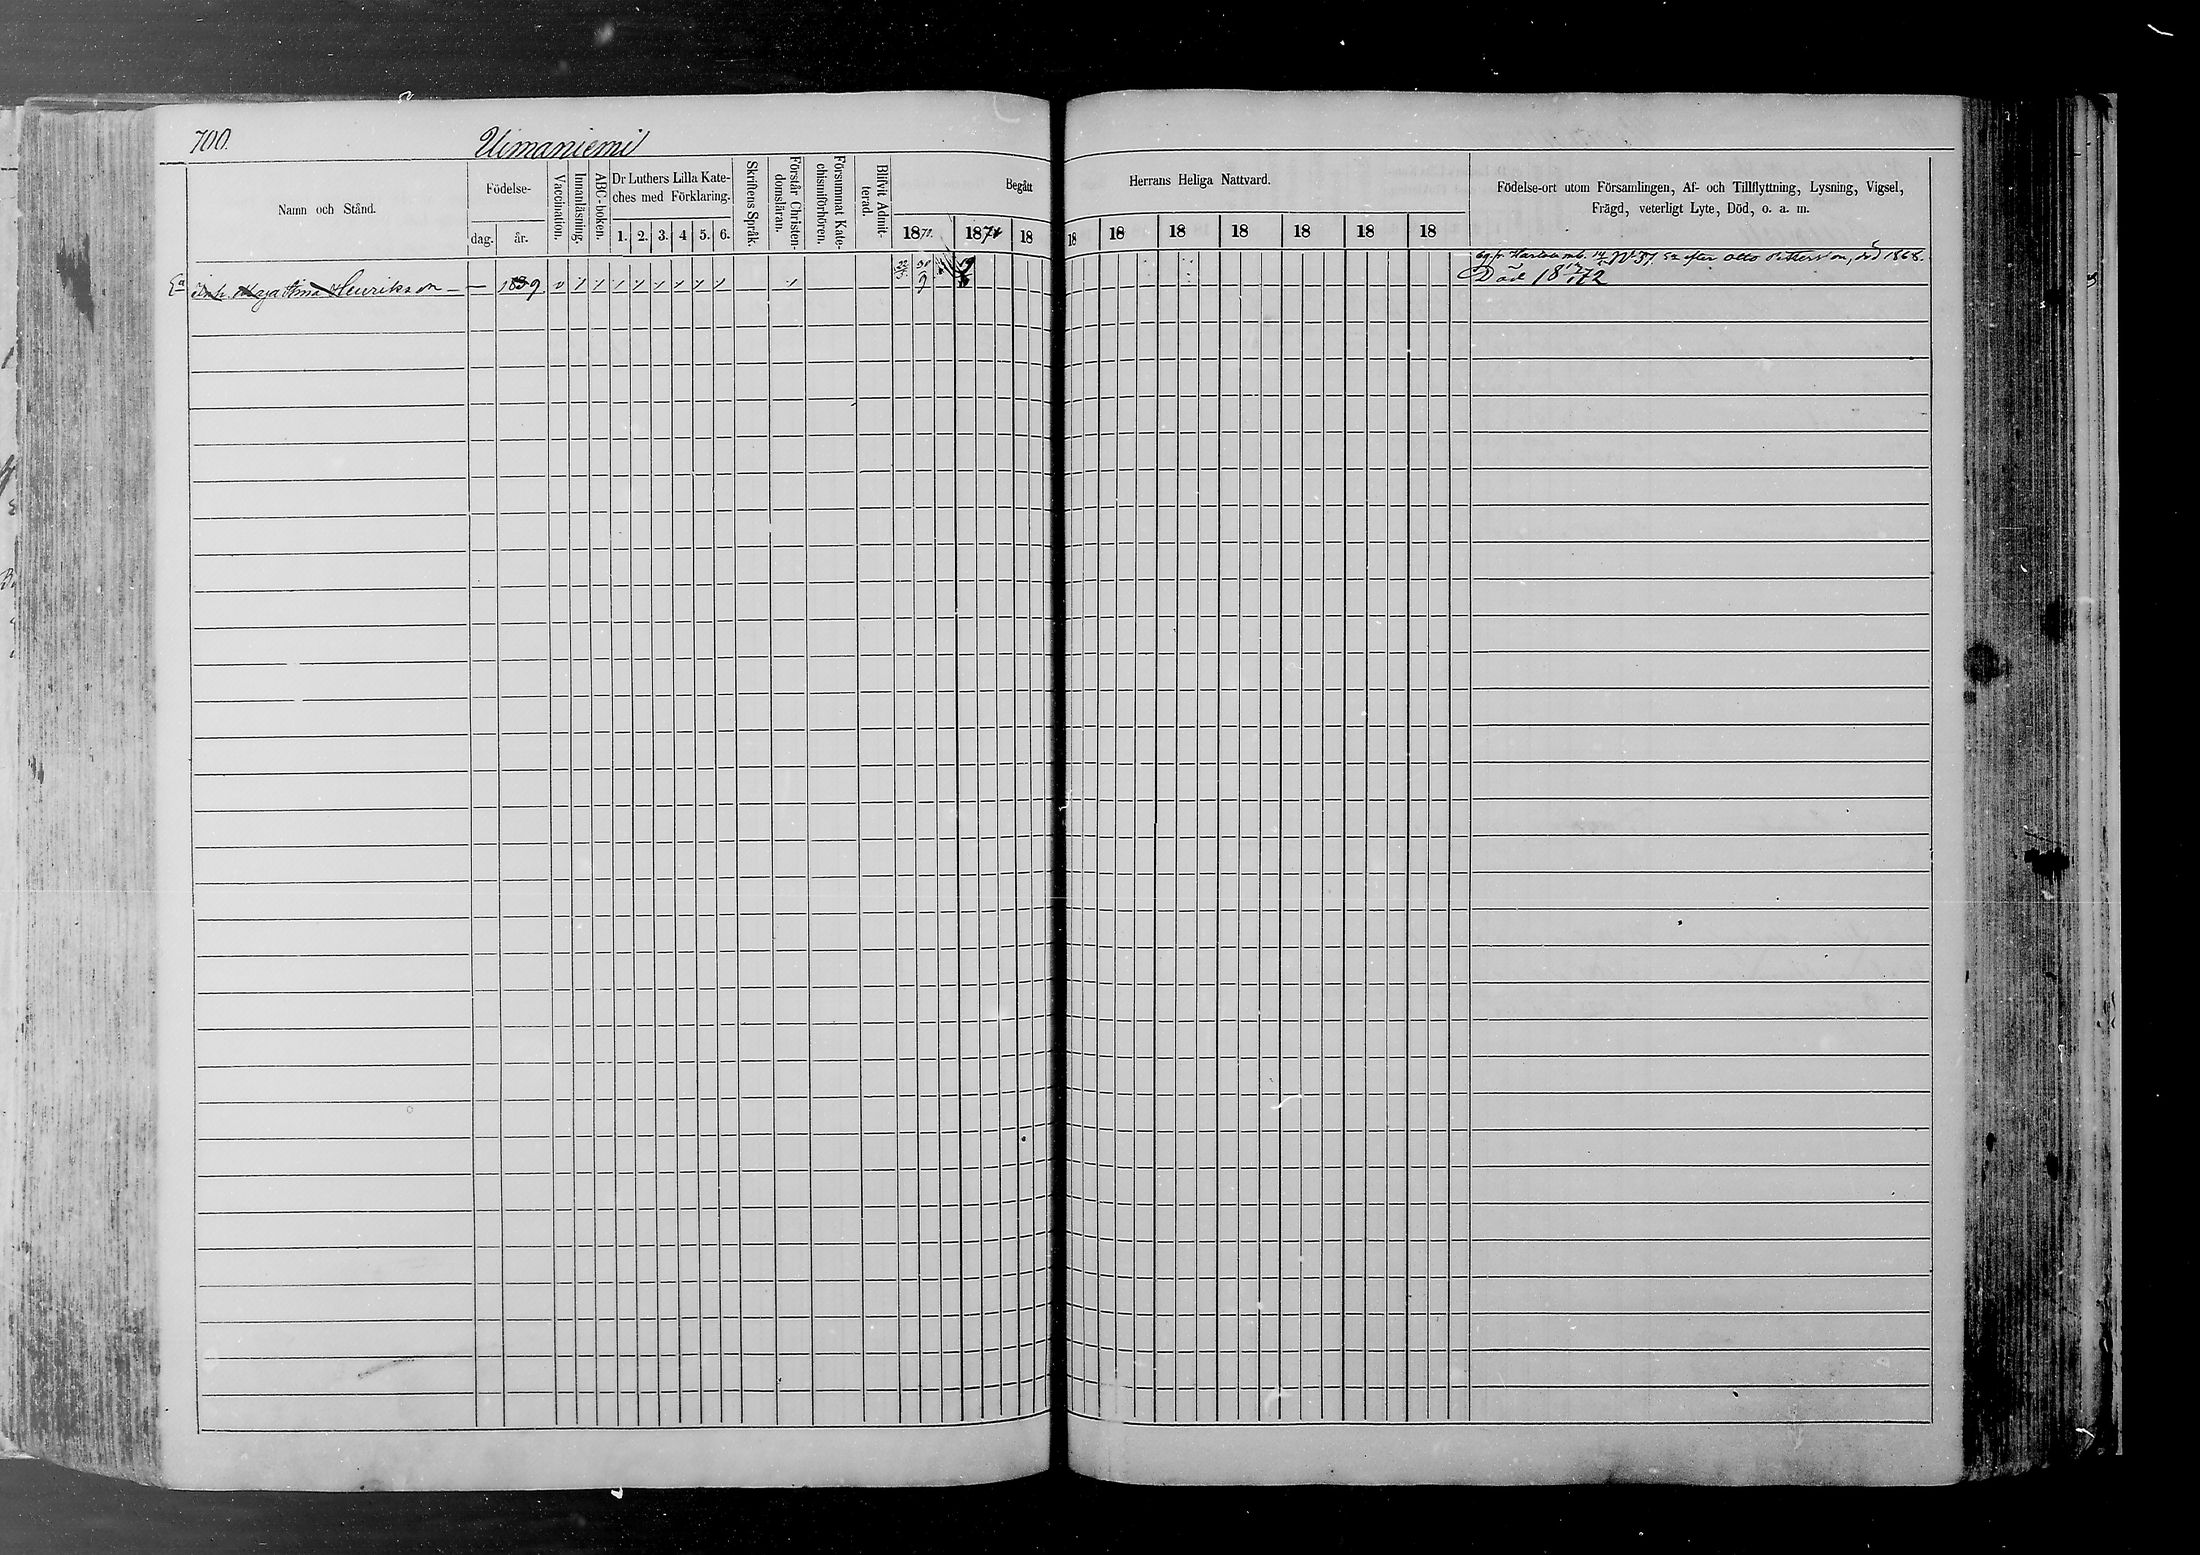 700.
Uimaniemi
Namn och Stånd.
Födelse-
dag.
år.
Vaccination.
Innanläsning.
ABC-boken.
Dr Luthers Lilla Kate-
ches med Förklaring.
1. 2. 3. 4 5. 6.
Skriftens Språk.
Förstår Christen-
domsläran.
Försummat Kate-
chismiförhören.
Blifvit Admit-
terad.
Begått
1870. 1871 18
Herrans Heliga Nattvard.
18 18 18 18 18 18 18
Födelse-ort utom Församlingen, Af- och Tillflyttning, Lysning, Vigsel,
Frägd, veterligt Lyte, Död, o. a. m.
efter Otto Pettersson, död 1868.
Maja Stina Henriksson — 1 1 1 1 1 1 1 1 1
Död 18 72